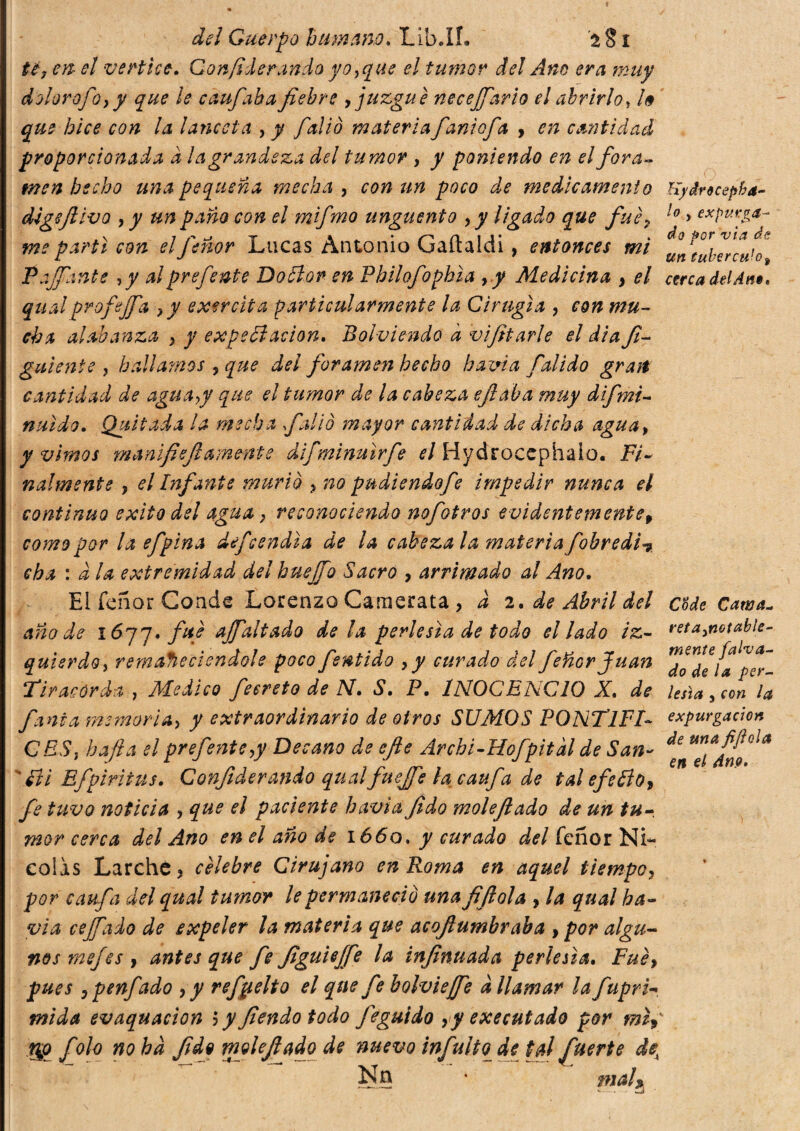 del Cuerpo humano. Lib.II. 281
te, en el vertice. Considerando yo, que el tumor del Ano era muy
doloroso, y que le causaba fiebre, juzguè necessario el abrirlo, lo
que hice con la lanceta, y saliò materia saniosa, en cantidad
proporcionada à la grandeza del tumor, y poniendo en el fora-
men hecho una pequeña mecha, con un poco de medicamento
digestivo, y un paño con el mismo unguento, y ligado que fuè,
me partì con el señor Lucas Antonio Gastaldi, entonces mi
Passante, y al presente Doctor en Philosophìa, y Medicina, el
qual professa, y exercita particularmente la Cirugìa, con mu-
cha alabanza, y expectacion. Bolviendo à visitarle el dia si-
guiente, hallamos, que del foramen hecho havia salido gran
cantidad de agua, y que el tumor de la cabeza estaba muy dismi-
nuìdo. Quitada la mecha, saliò mayor cantidad de dicha agua,
y vimos manifiestamente disminuirse el Hydrocephalo. Fi-
nalmente, el Infante muriò, no pudiendose impedir nunca el
continuo exito del agua, reconociendo nosotros evidentemente,
como por la espina descendìa de la cabeza la materia sobredi-
cha: à la extremidad del huesso Sacro, arrimado al Ano.
El señor Conde Lorenzo Camerata, à 2. de Abril del
año de 1677. fuè assaltado de la perlesìa de todo el lado iz-
quierdo, remaneciendole poco sentido, y curado del señor Juan
Tiracorda, Medico secreto de N. S. P. INOCENCIO X. de
santa memoria, y extraordinario de otros SUMOS PONTIFI-
CES, hasta el presente, y Decano de este Archi-Hospitàl de San-
cti Espiritus. Considerando qual fuesse la causa de tal efecto,
se tuvo noticia, que el paciente havia sido molestado de un tu-
mor cerca del Ano en el año de 1660. y curado del señor Ni-
colàs Larche, cèlebre Cirujano en Roma en aquel tiempo,
por causa del qual tumor le permaneciò una fistola, la qual ha-
via cessado de expeler la materia que acostumbraba, por algu-
nos meses, antes que se siguiesse la insinuada perlesìa. Fuè,
pues, pensado, y resuelto el que se bolviesse à llamar la supri-
mida evaquacion; y siendo todo seguido, y executado por mì,
no solo no hà sido molestado de nuevo insulto de tal suerte de
Nn mal,
Hydrocepha-
lo, expurga-
do por via de
un tuberculo,
cerca del Ano.
Cõde Cama-
reta, notable-
mente salva-
do de la per-
lesìa, con la
expurgacion
de una fistola
en el Ano.